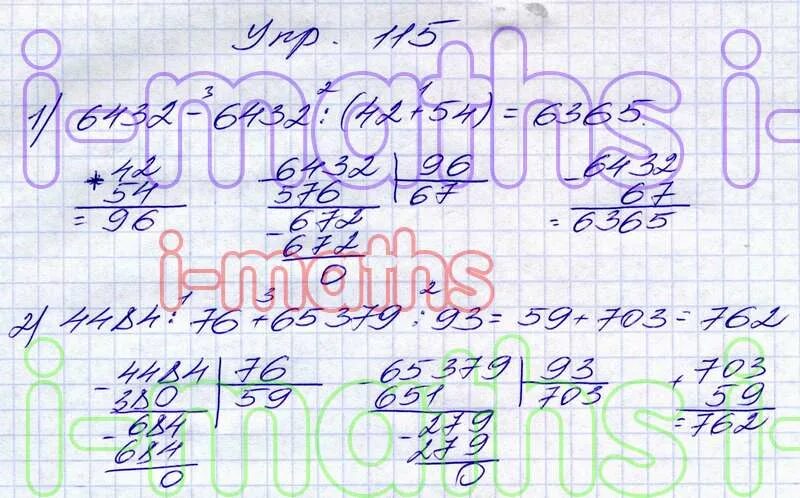 Упр. 115
i-maths i
1) 6432 -³ 6432 :² (42 +¹ 54) = 6365.
+ 42
54
= 96
- 6432 | 96
576 | 67
- 672
672
0
- 6432
67
= 6365
i-maths
2) 4484 :¹ 76 +³ 65379 :² 93 = 59 + 703 = 762
- 4484 | 76
380 | 59
- 684
684
0
- 65379 | 93
651 | 703
- 279
279
0
+ 703
59
= 762
i-maths i